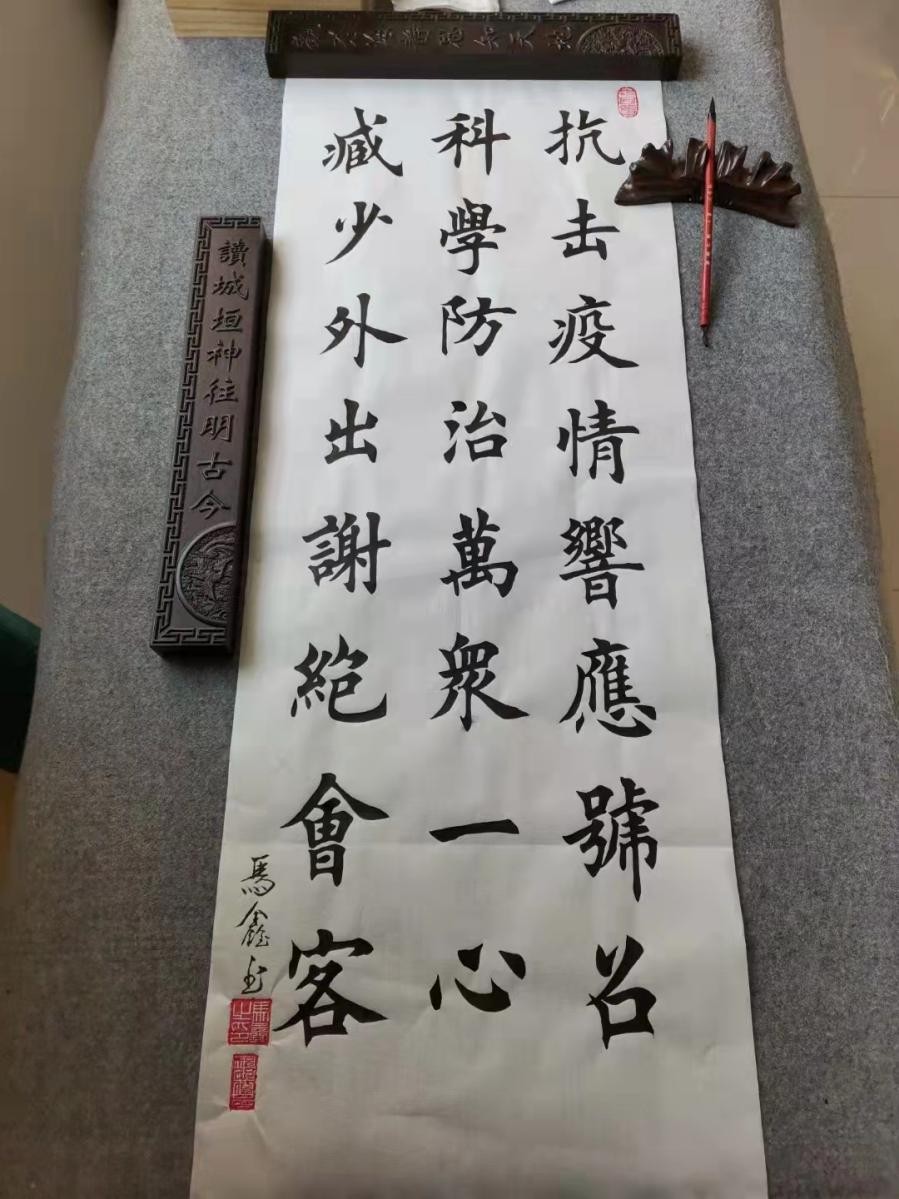 抗击疫情響應號召
科學防治萬衆一心
臧少外出謝絶會客
馬鑫書
馬鑫之印
讀城垣神往明古今